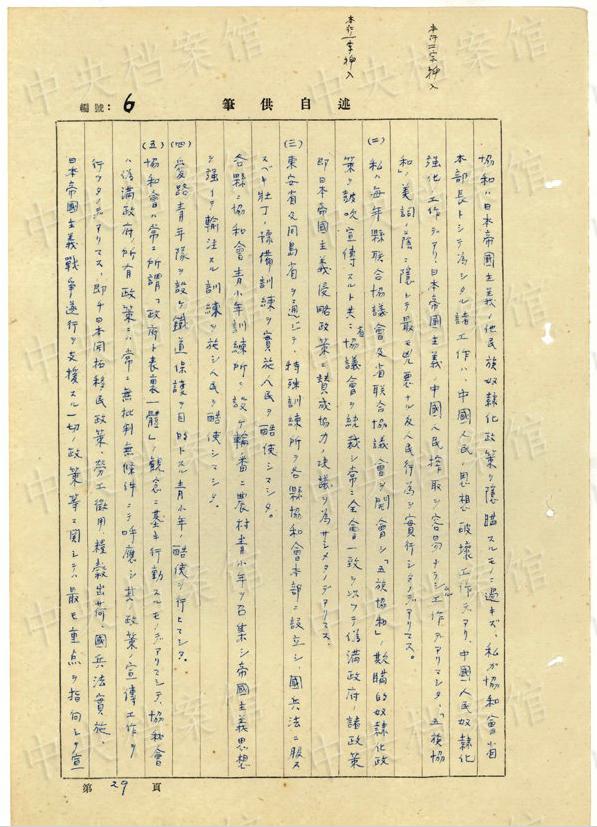 本行二字挿入
本行一字挿入
編號：6
筆供自述
協和ハ日本帝國主義ノ他民族奴隷化政策ヲ隠瞞スルモノニ過ギズ、私ガ協和會省
本部長トシテ為シタル諸工作ハ、中國人民ノ思想破壊工作デアリ、中國人民奴隷化
強化工作デアリ、日本帝國主義ノ中國人民搾取ヲ容易ナラシム工作デアリマシタ、「五族協
和」ノ美詞ノ陰ニ隠レテ最モ兇悪ナル反人民行為ヲ實行シタノデアリマス。
(二)私ハ毎年縣联合協議會及省联合協議會ヲ開會シ「五族協和」ノ欺瞞的奴隷化政
策ヲ鼓吹宣傳スルト共ニ協議會ヲ統裁シ常ニ全會一致ヲ以ツテ偽満政府ノ諸政策
即日本帝國主義侵略政策ニ賛成協力ノ決議ヲ為サシメタノデアリマス、
(三)東安省及間島省ヲ通ジテ、特殊訓練所ヲ各縣協和會本部ニ設立シ、國兵法ニ服ス
スベキ壮丁ノ豫備訓練ヲ實施人民ヲ酷使シマシタ。
各縣ノ協和會青少年訓練所ヲ設ケ輪番ニ農村青少年ヲ召集シ帝國主義思想
ヲ強イテ輸注スル訓練ヲ施シ人民ヲ酷使シマシタ。
(四)愛路青年隊ヲ設ケ鐵道保護ヲ目的トスル青少年ノ酷使ヲ行ヒマシタ。
(五)協和會ハ常ニ所謂「政府ト表裏一體」ノ観念ニ基キ行動スルモノデアリマシテ、協和會
ハ偽満政府ノ所有政策ニハ常ニ無批判無條件ニテ呼應シ其ノ政策ノ宣傳工作ヲ
行ツタノデアリマス、即チ日本開拓移民政策、勞工徴用、糧穀出荷、國兵法實施、
日本帝國主義戦争遂行ヲ支援スル一切ノ政策等ニ関シテハ最モ重点ヲ指向シテ宣
第 29 頁